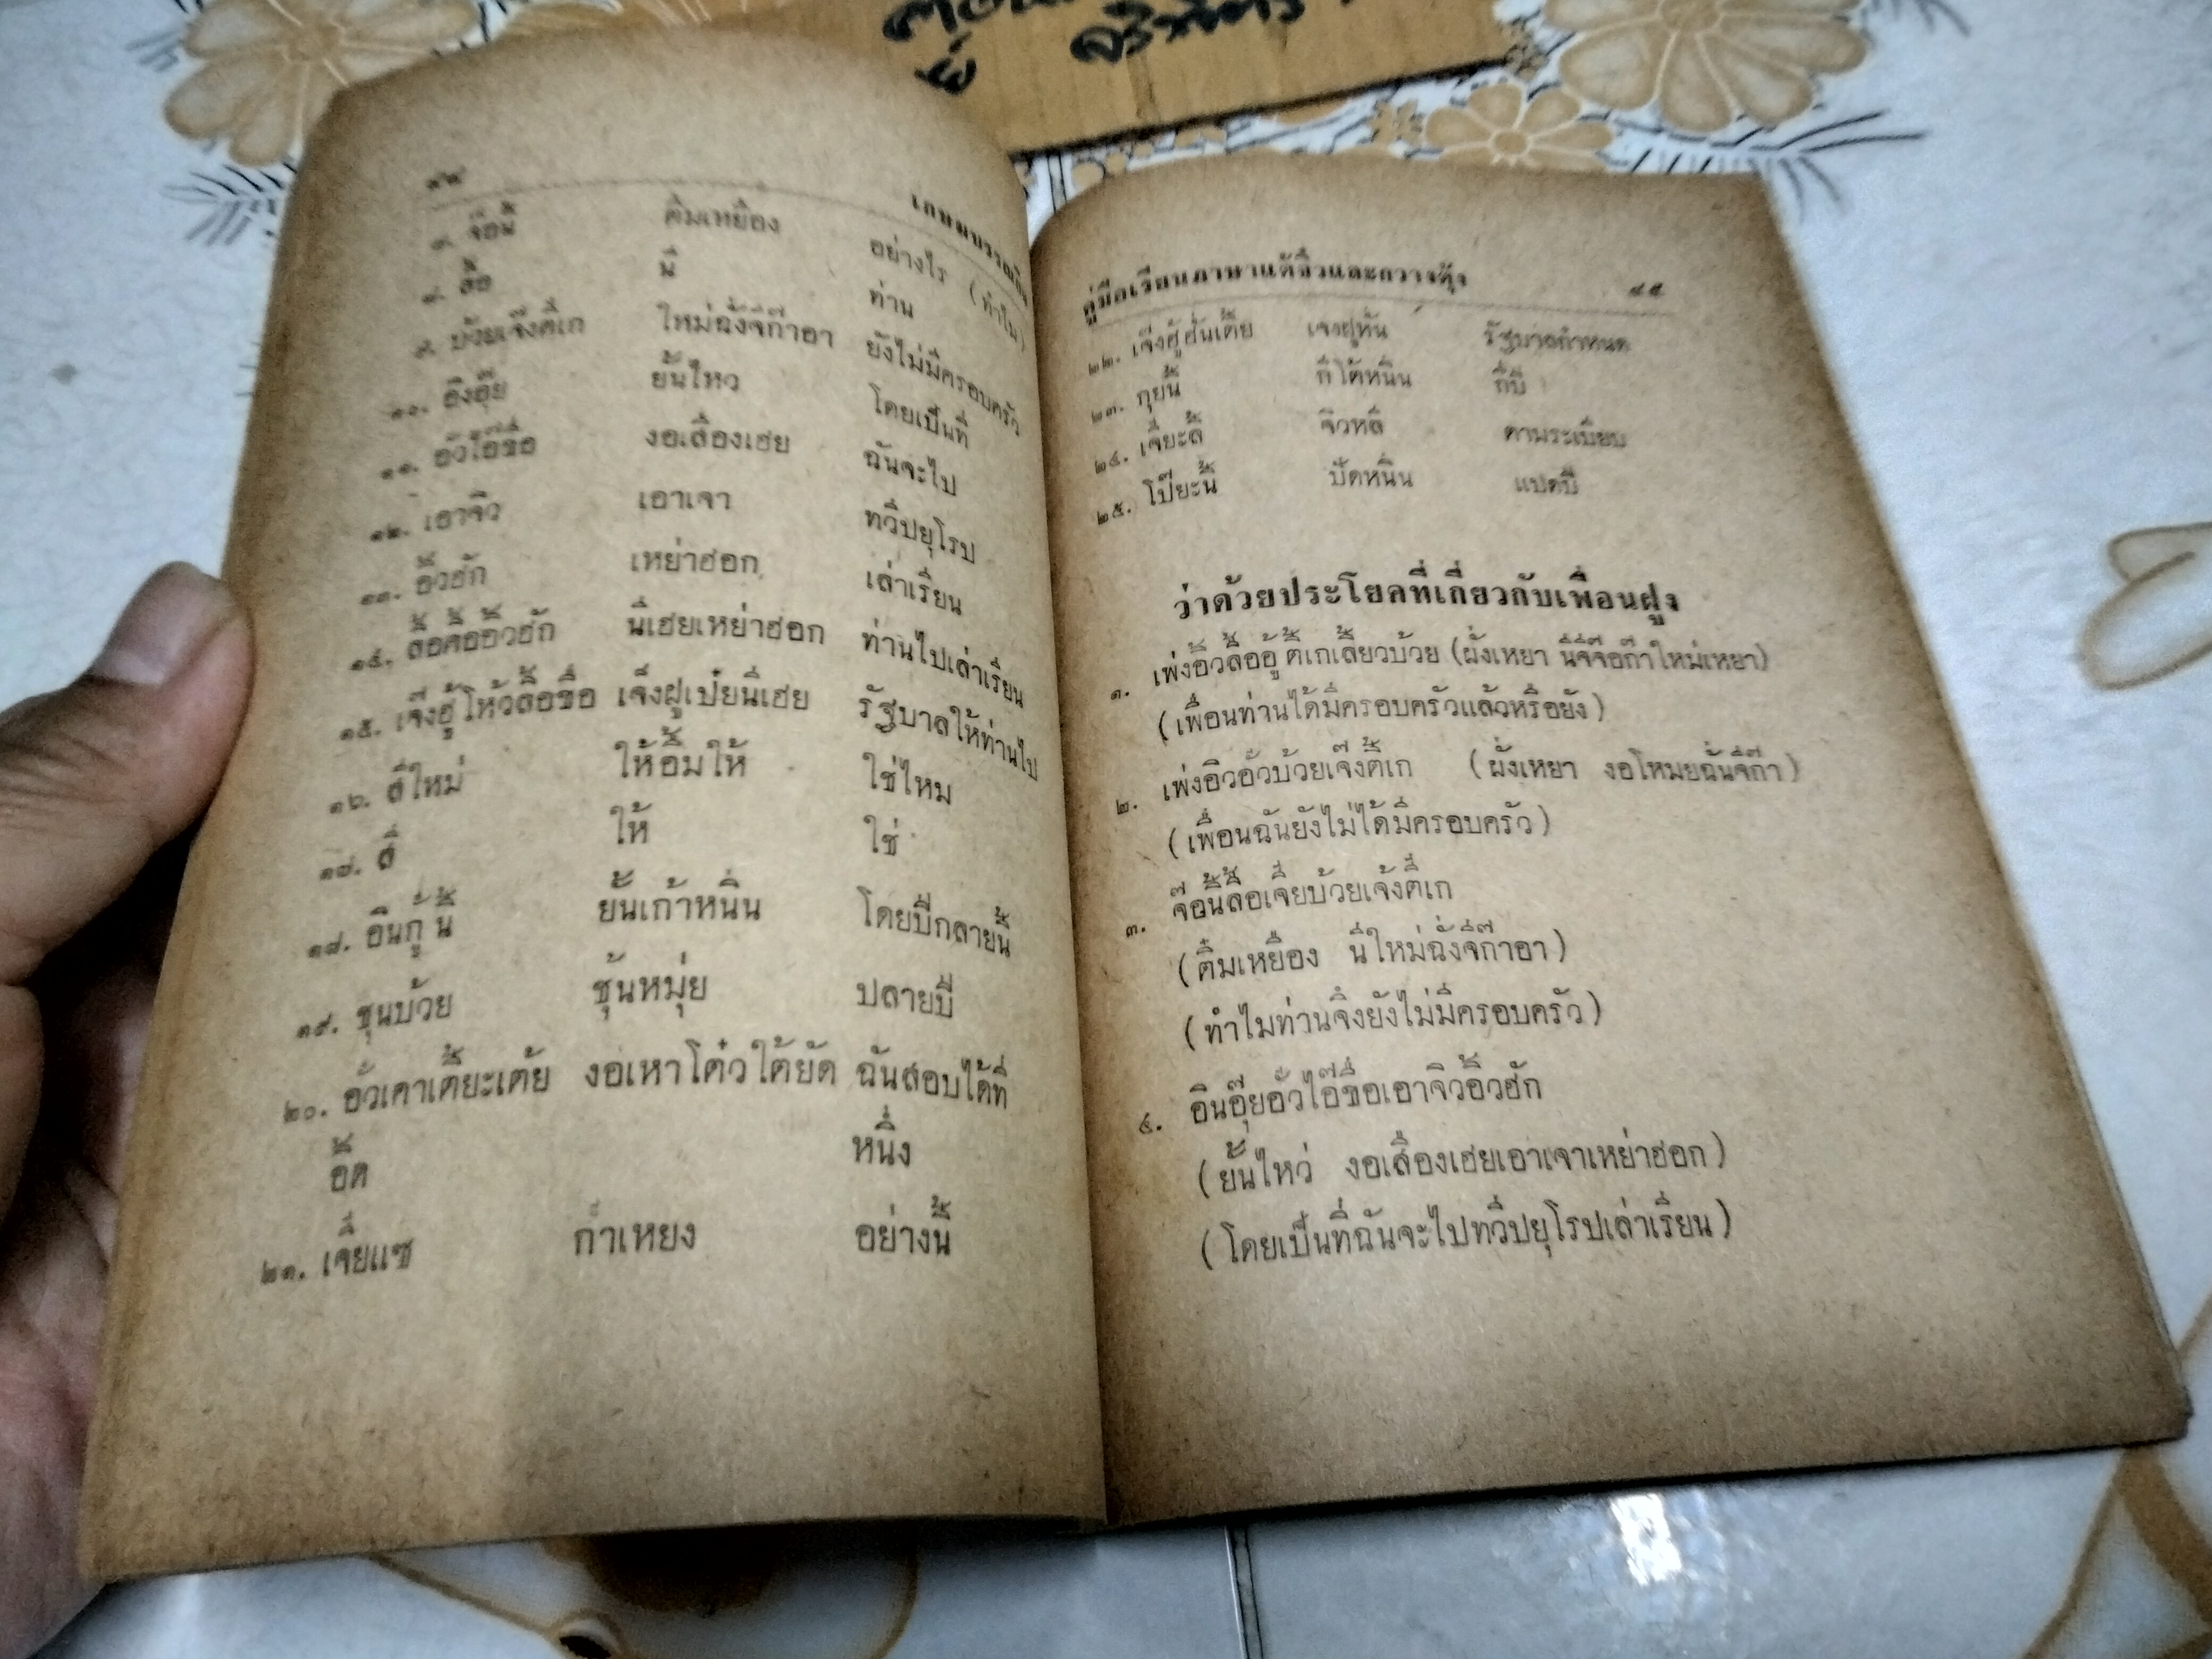 จริภัทร
๔๔ เกษมบรรณกิจ
๗. จ๊อนี้ ติ๋มเหยือง อย่างไร (ทำไม)
๘. ลื้อ นี ท่าน
๙. บ้วยเจ๊งติ๊เก ใหม่ฉั่งจีก๊าอา ยังไม่มีครอบครัว
๑๐. อิงอุ๊ย ยั้นไหว โดยเป็นที่
๑๑. อั๊วไอ๊ขื่อ งอเสื่องเฮย ฉันจะไป
๑๒. เอาจิว เอาเจา ทวีปยุโรป
๑๓. อิ๊วฮัก เหย่าฮอก เล่าเรียน
๑๔. ลื้อคืออิ๊วฮัก นี่เฮยเหย่าฮอก ท่านไปเล่าเรียน
๑๕. เจ๊งฮู้โห้วลื้อขื่อ เจ็งฝูเป๋ยนี่เฮย รัฐบาลให้ท่านไป
๑๖. สี่ใหม่ ให้อื้มให้ ใช่ไหม
๑๗. สี่ ให้ ใช่
๑๘. อินกู้นี้ ยั้นเก้าหนิ่น โดยปีกลายนี้
๑๙. ชุนบ้วย ชุ้นหมุ่ย ปลายปี
๒๐. อั๊วเคาเตี๊ยะเต้ย งอเหาโต๋วใต้ยัด ฉันสอบได้ที่
อิ๊ด หนึ่ง
๒๑. เจี่ยแซ ก๊าเหยง อย่างนี้
คู่มือเรียนภาษาแต้จิ๋วและกวางตุ้ง ๔๕
๒๒. เจ๊งฮู้ฮั่นเตี๊ย เจงฝูหั่น รัฐบาลกำหนด
๒๓. กุยนี้ กี๋โต้หนิน กี่ปี
๒๔. เจี๊ยะลี้ จิวหลี ตามระเบียบ
๒๕. โป๊ยะนี้ ปัดหนิน แปดปี
ว่าด้วยประโยคที่เกี่ยวกับเพื่อนฝูง
๑. เพ่งอิ๊วลื้ออู้ติ๊เกเลี้ยวบ้วย (ผั่งเหยา นีจี๊จ๊อก๊าใหม่เหยา)
(เพื่อนท่านได้มีครอบครัวแล้วหรือยัง)
๒. เพ่งอิวอั๊วบ้วยเจ๊งติ๊เก (ผั่งเหยา งอโหมยฉั้นจีก๊า)
(เพื่อนฉันยังไม่ได้มีครอบครัว)
๓. จ๊อนี้ลื้อเจี่ยบ้วยเจ้งตี่เก
(ติ๋มเหยือง นีใหม่ฉั่งจีก๊าอา)
(ทำไมท่านจึงยังไม่มีครอบครัว)
๔. อินอุ๊ยอั๊วไอ๊ขื่อเอาจิวอิ๊วฮัก
(ยั้นไหว่ งอเสื่องเฮยเอาเจาเหย่าฮอก)
(โดยเป็นที่ฉันจะไปทวีปยุโรปเล่าเรียน)